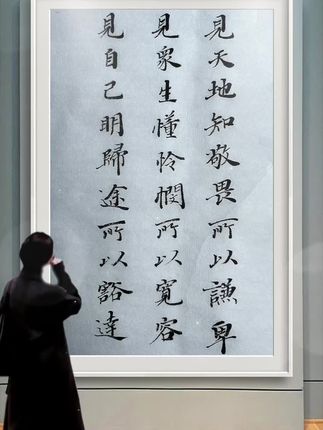 見天地知敬畏所以謙卑
見衆生懂憐憫所以寬容
見自己明歸途所以豁達